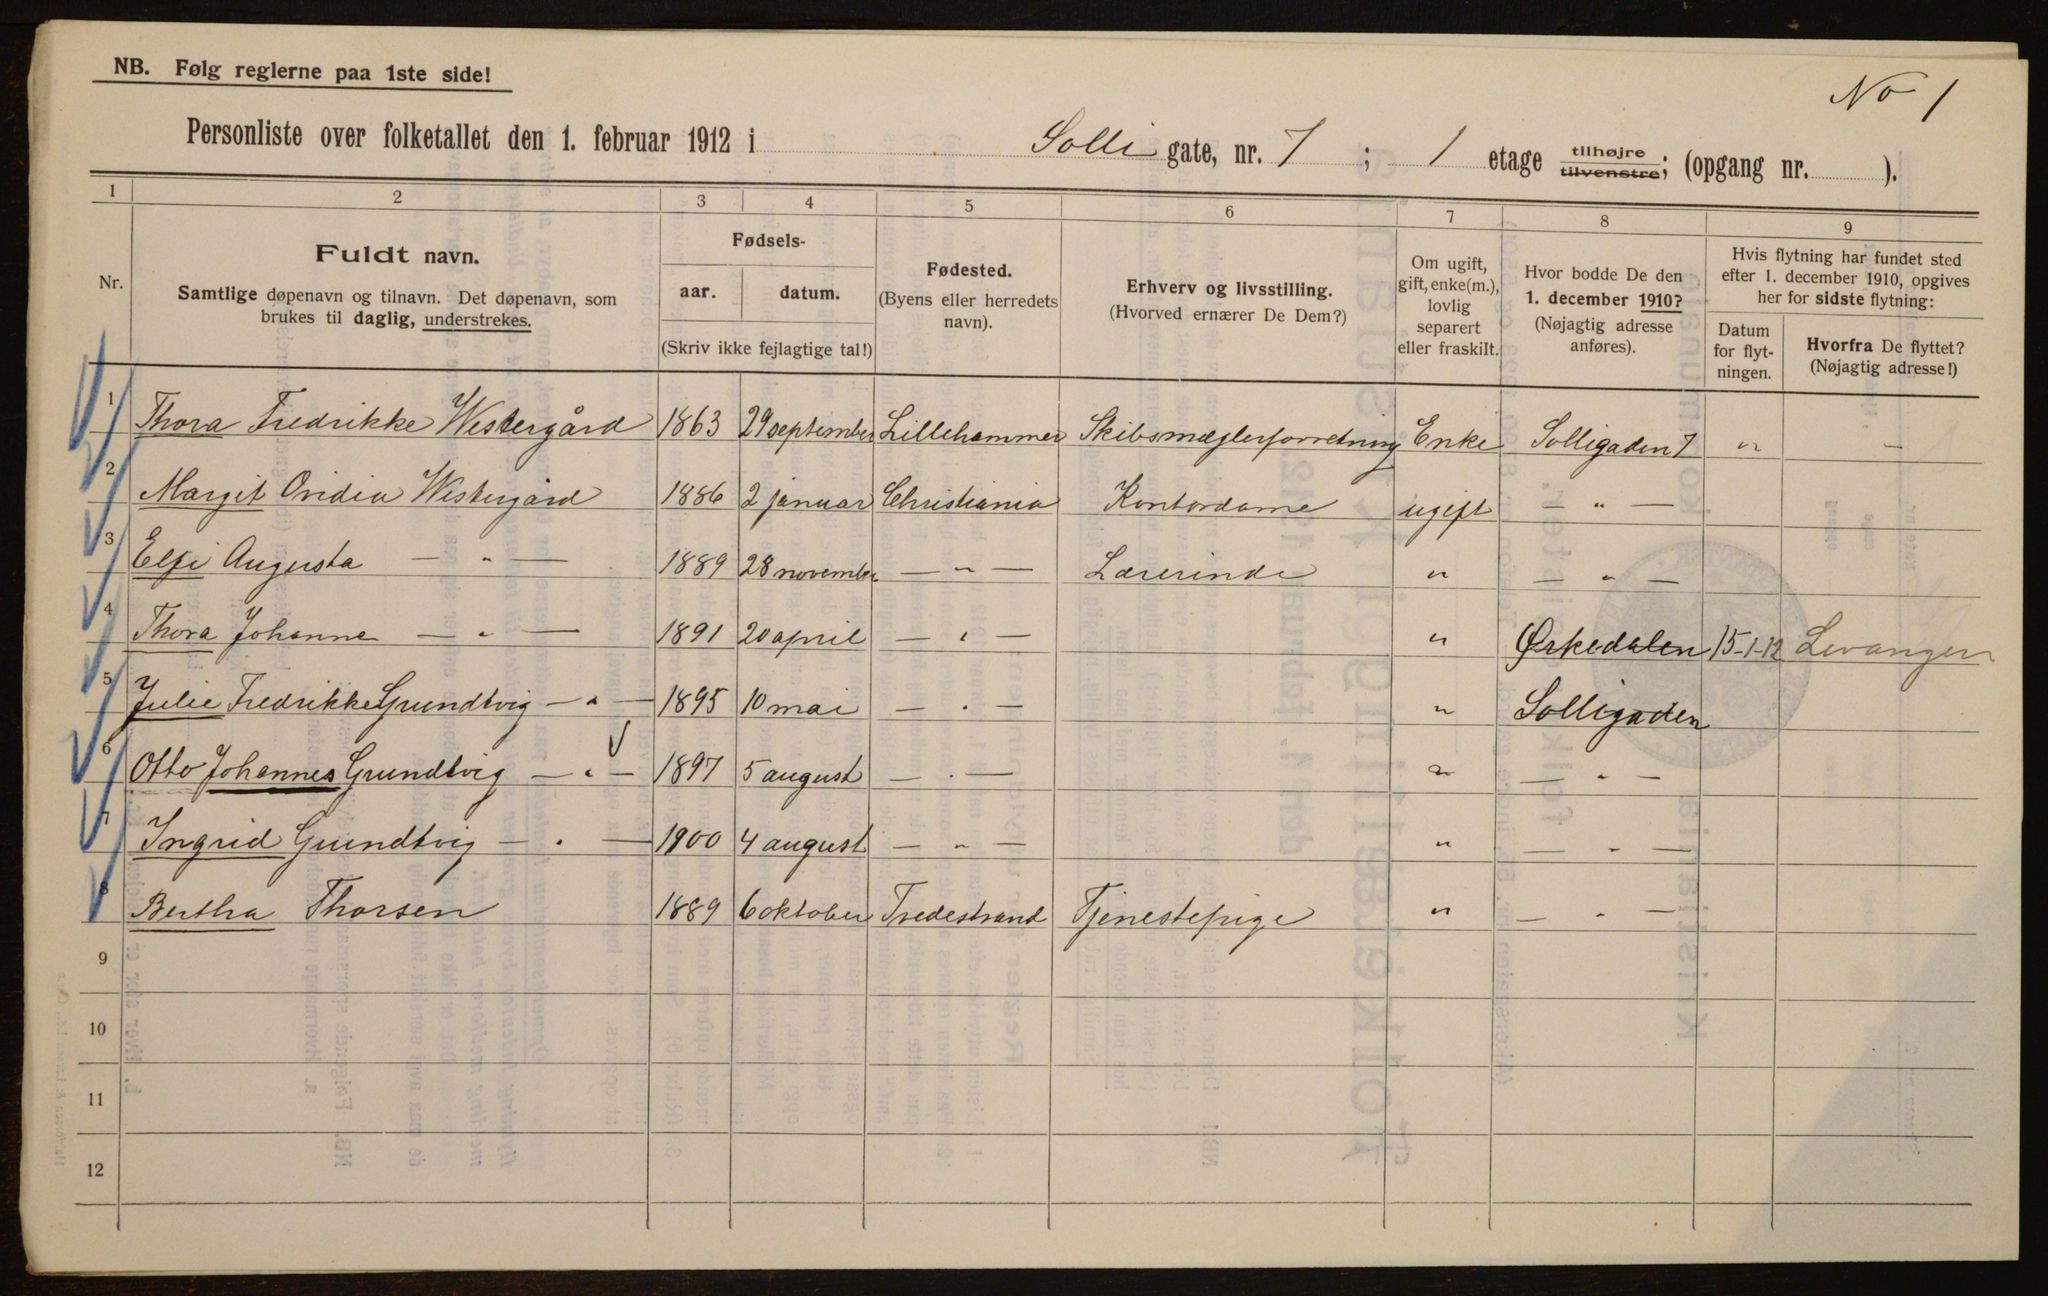 NB. Følg reglerne paa 1ste side!
No 1
Personliste over folketallet den 1. februar 1912 i Solli gate, nr. 7 ; 1 etage tilhøjre tilvenstre; (opgang nr. ).
1 2 3 4 5 6 7 8 9
Nr.
Fuldt navn.
Samtlige døpenavn og tilnavn. Det døpenavn, som
brukes til daglig, understrekes.
Fødsels-
aar. datum.
(Skriv ikke fejlagtige tal!)
Fødested.
(Byens eller herredets
navn).
Erhverv og livsstilling.
(Hvorved ernærer De Dem?)
Om ugift,
gift, enke(m.),
lovlig
separert
eller fraskilt.
Hvor bodde De den
1. december 1910?
(Nøjagtig adresse
anføres).
Hvis flytning har fundet sted
efter 1. december 1910, opgives
her for sidste flytning:
Datum
for flyt-
ningen.
Hvorfra De flyttet?
(Nøjagtig adresse!)
1 Thora Fredrikke Westergård 1863 29 september Lillehammer Skibsmæglerforretning Enke Solligaden 7 " —
2 Margit Ovidia Westergård 1886 2 januar Christiania Kontordame ugift — " —
3 Elfi Augusta — " — 1889 28 november — " — Lærerinde " — " —
4 Thora Johanne — " — 1891 20 april — " — " Ørkedalen 15-1-12 Levanger
5 Julie Fredrikke Grundtvig — " — 1895 10 mai — " — " Solligaden
6 Otto Johannes Grundtvig — " — 1897 5 august — " — " — " —
7 Ingrid Grundtvig — " — 1900 4 august — " — " — " —
8 Bertha Thorsen 1889 6 oktober Tredestrand Tjenestepige " — " —
9
10
11
12